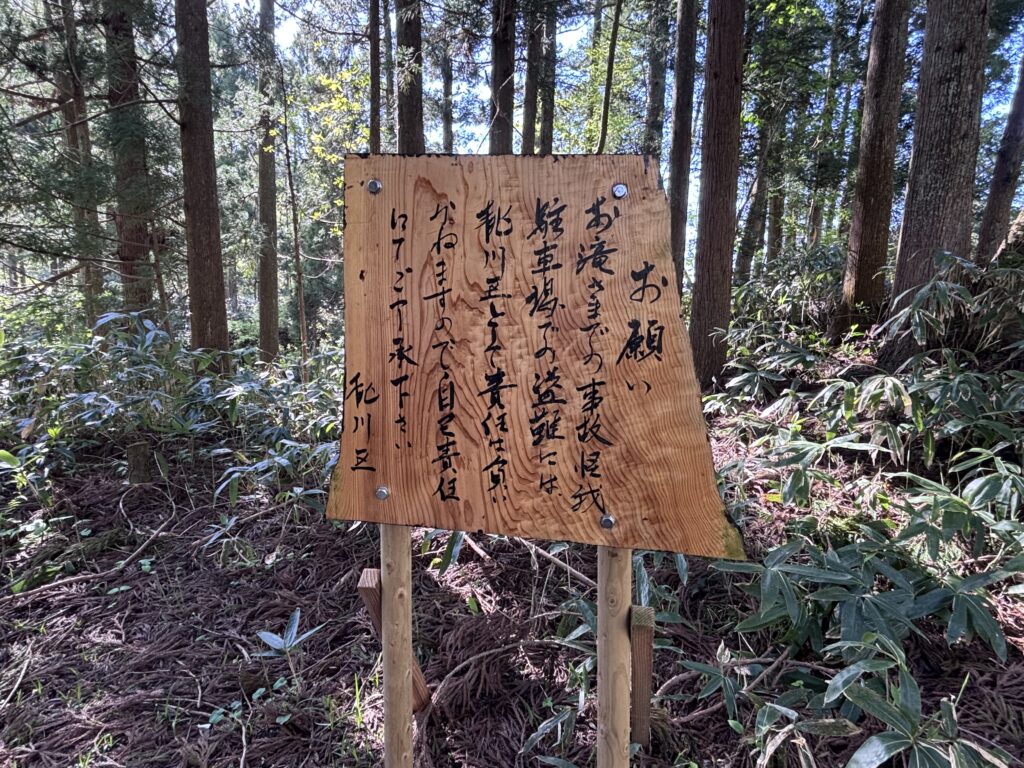 お願い
お滝さまでの事故怪我
駐車場での盗難には
として責任は負い
かねますので自己責任
にてご了承下さい